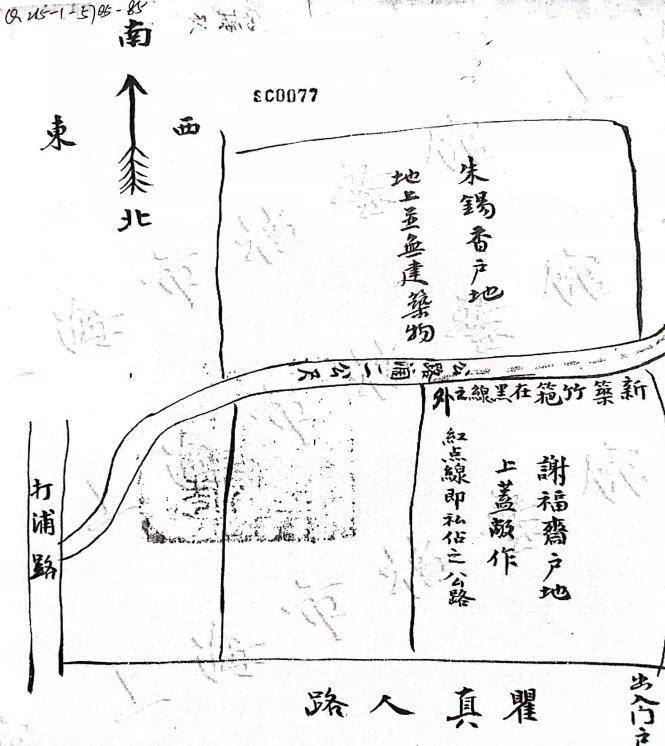 南
SC0077
東
西
北
朱錫香户地
地上並無建築物
公路涧二公尺
新築竹笆在黑線之外
謝福齋户地
上蓋敞作
紅点線即私佔之公路
打浦路
瞿真人路
出入门户